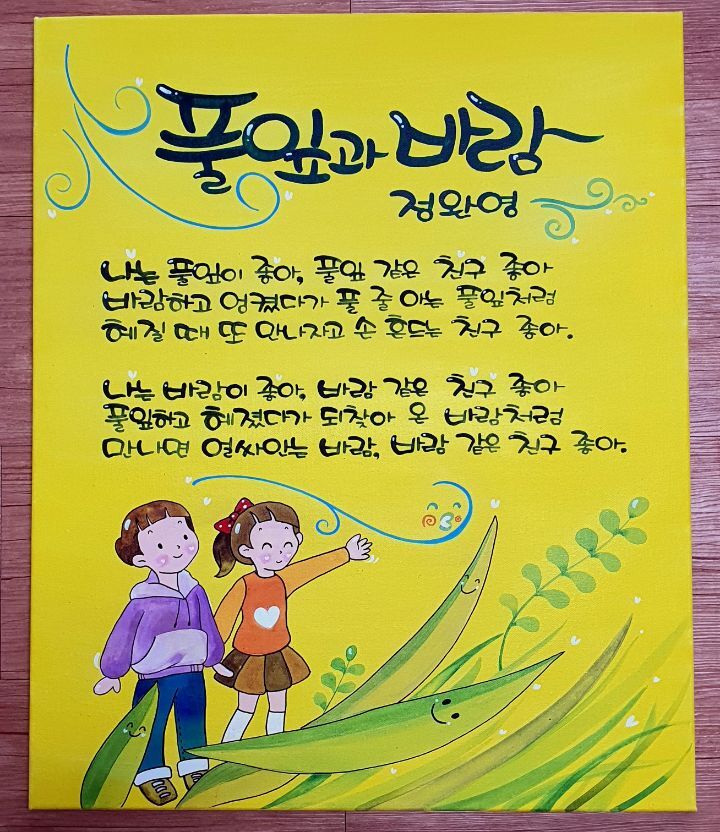 풀잎과 바람
정완영
나는 풀잎이 좋아, 풀잎 같은 친구 좋아
바람하고 엉켰다가 풀 줄 아는 풀잎처럼
헤질 때 또 만나자고 손 흔드는 친구 좋아.
나는 바람이 좋아, 바람 같은 친구 좋아
풀잎하고 헤졌다가 되찾아 온 바람처럼
만나면 얼싸안는 바람, 바람 같은 친구 좋아.